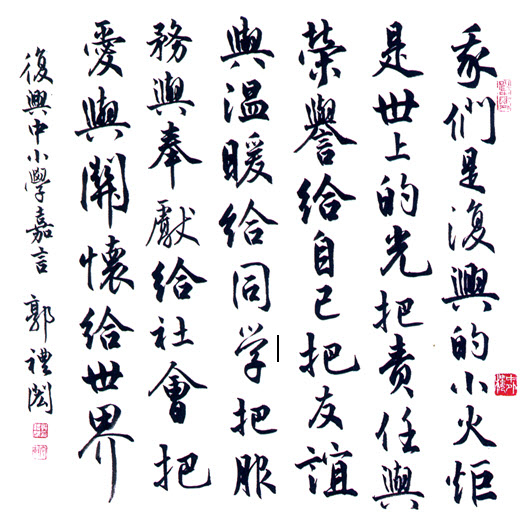 我們是復興的小火炬
是世上的光把責任與
榮譽給自己把友誼
與溫暖給同学把服
務與奉獻給社會把
愛與關懷給世界
復興中小學嘉言 郭禮閎